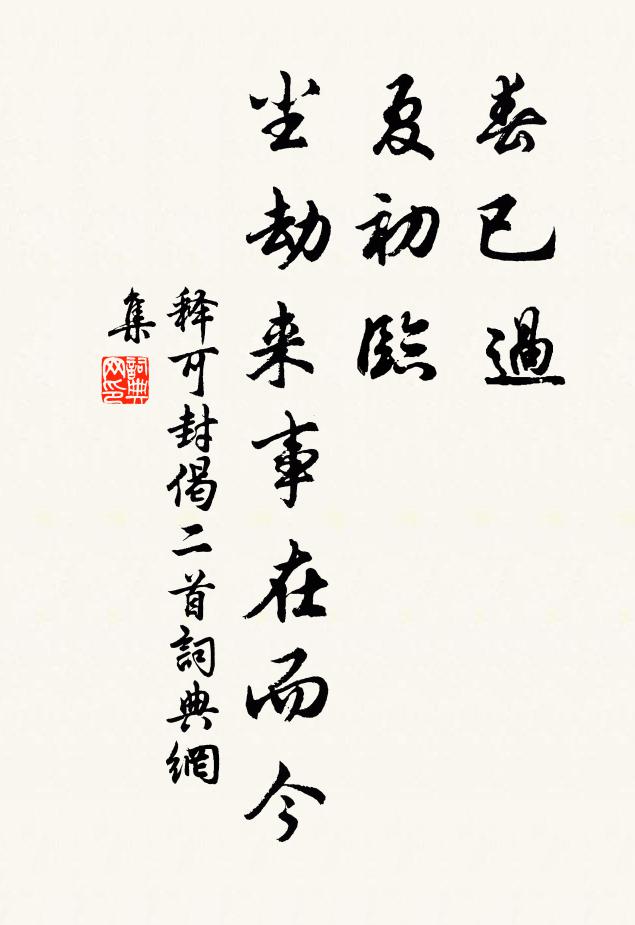 春已過
夏初臨
尘劫来事在而今
释可封偈二首詞典網
集
詞典
网印